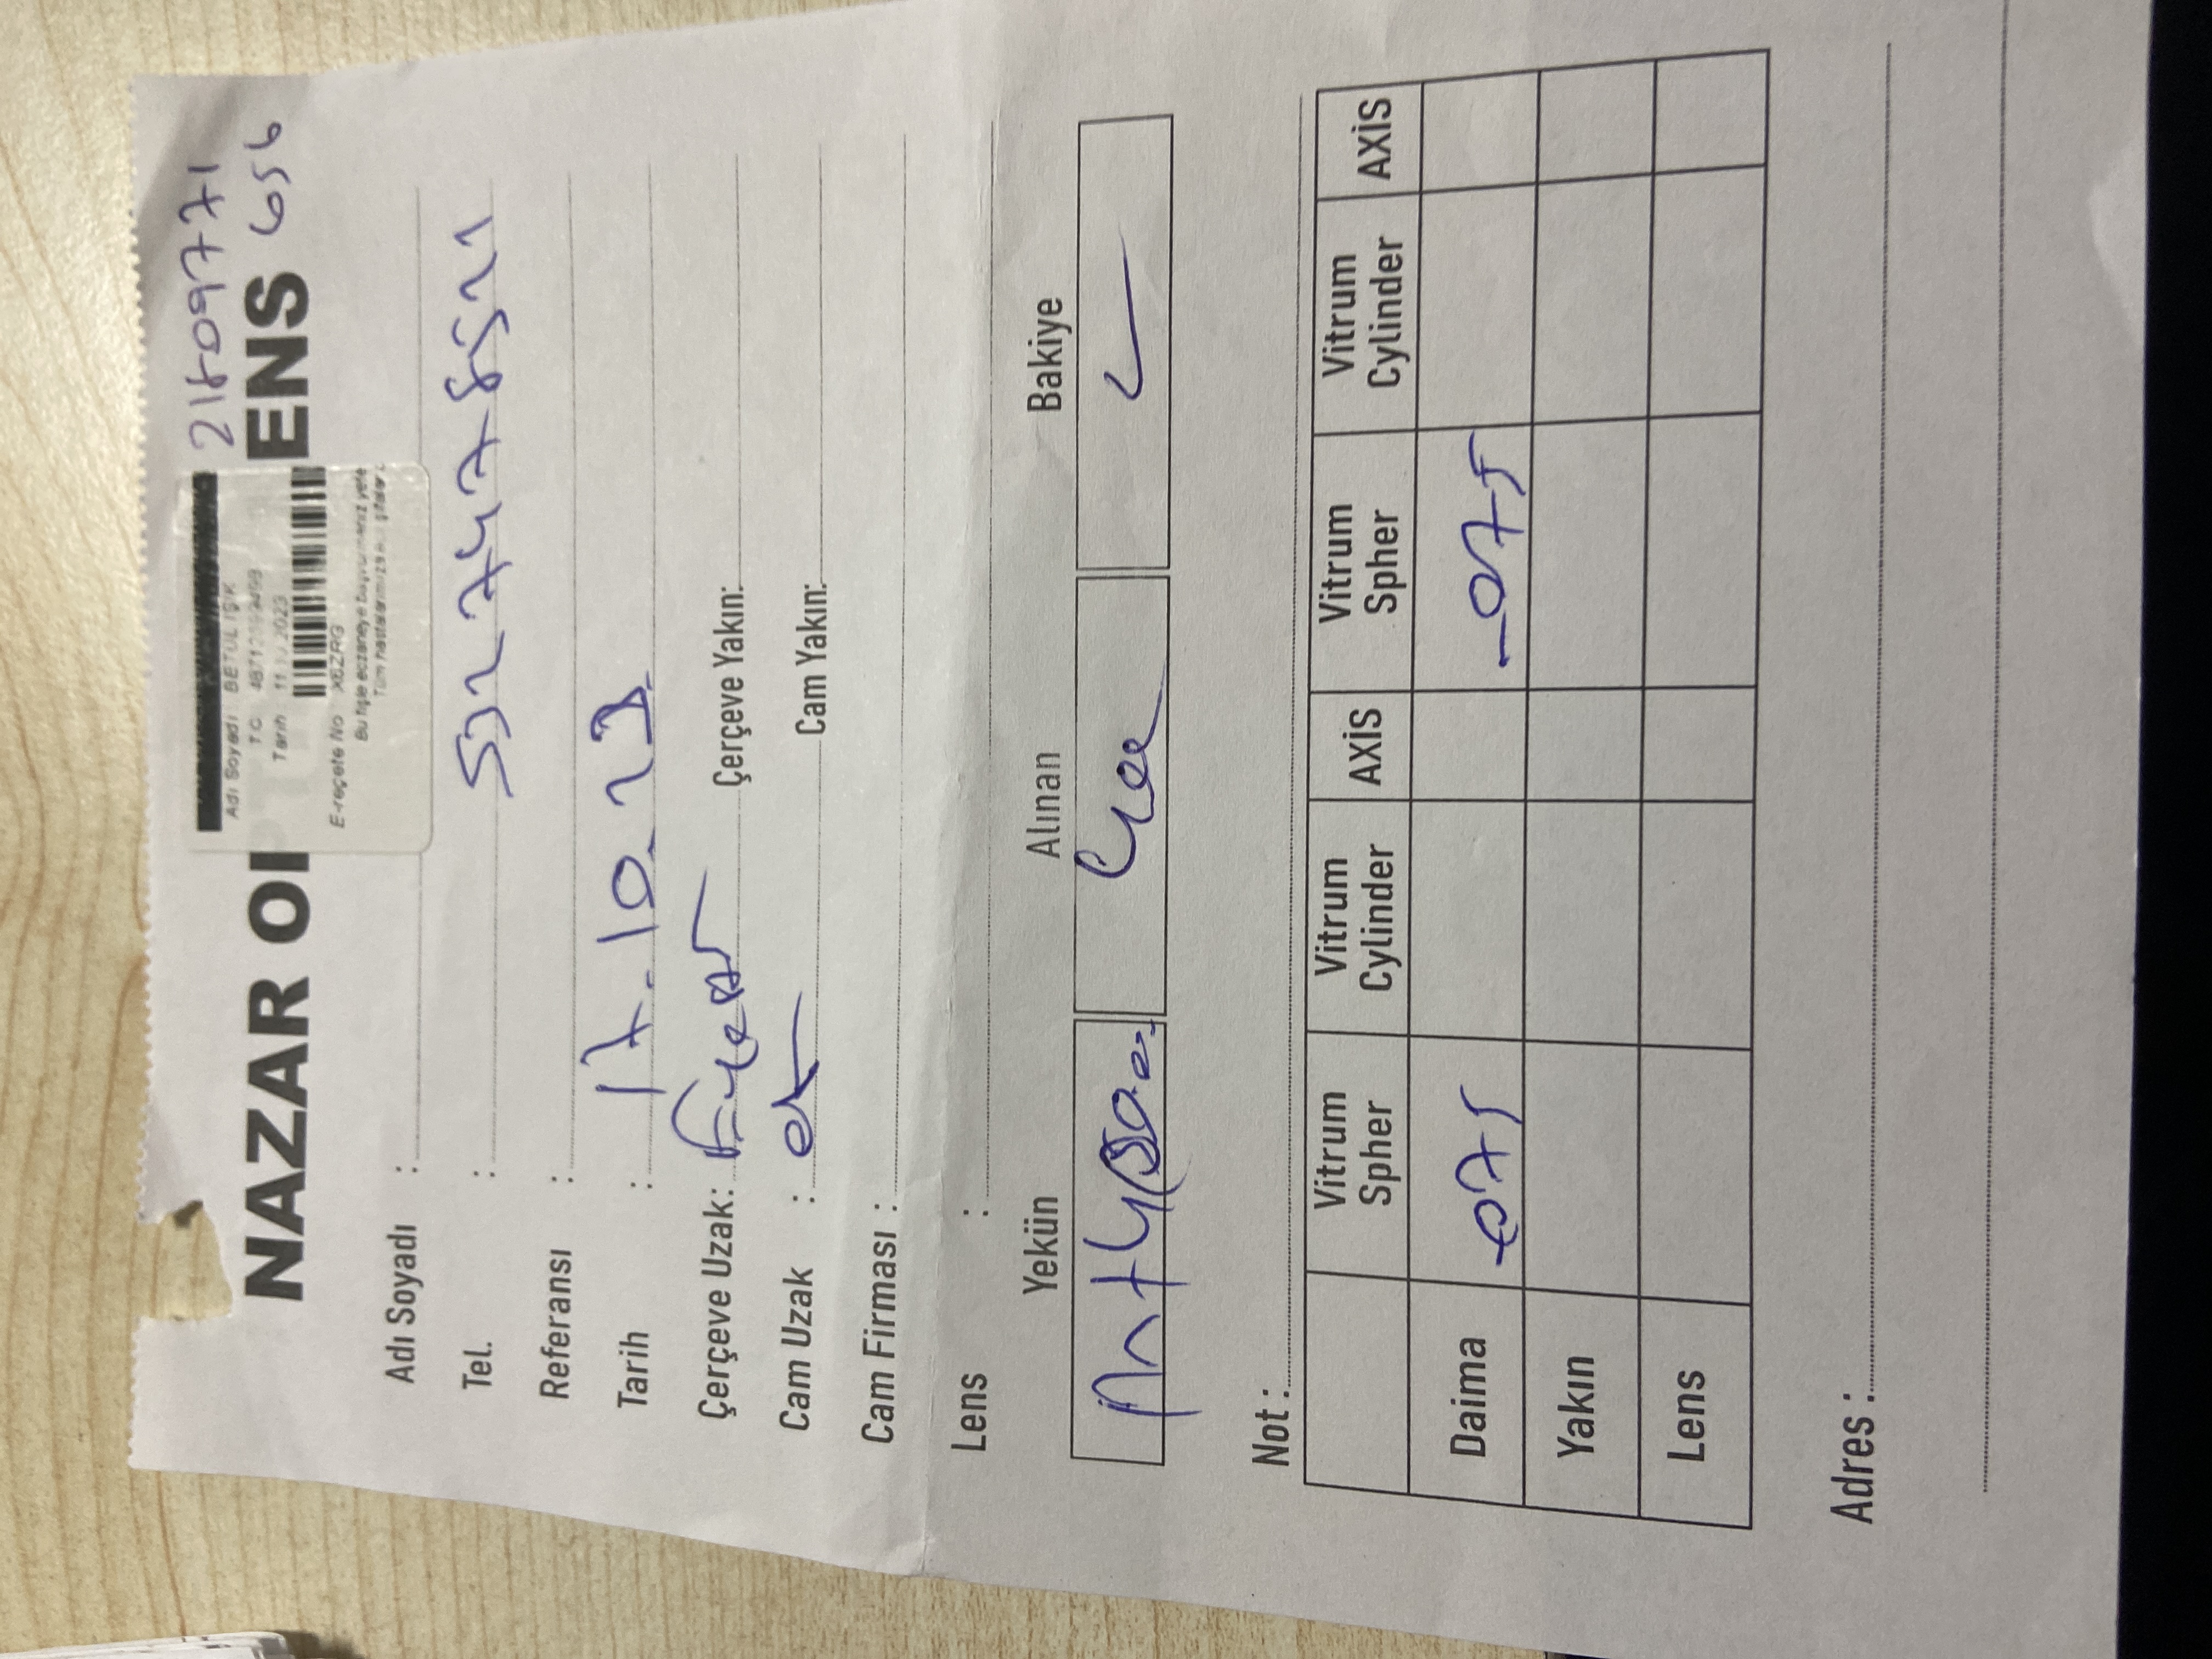 21809771
656
NAZAR OP ENS
Adı Soyadı : BETÜL IŞIK
T.C
Tarih
E-reçete No X6ZRG
Bu fişle eczaneye başvurmanız yete
Tüm hastalarımıza acil şifalar
Adı Soyadı :
Tel. : 532 747 8521
Referansı :
Tarih : 17.10.23
Çerçeve Uzak: Çerçeve Yakın:
Cam Uzak : Cam Yakın:
Cam Firması :
Lens :
Yekün Alınan Bakiye
Not :
Vitrum Spher Vitrum Cylinder AXİS Vitrum Spher Vitrum Cylinder AXİS
Daima -075 -075
Yakın
Lens
Adres :